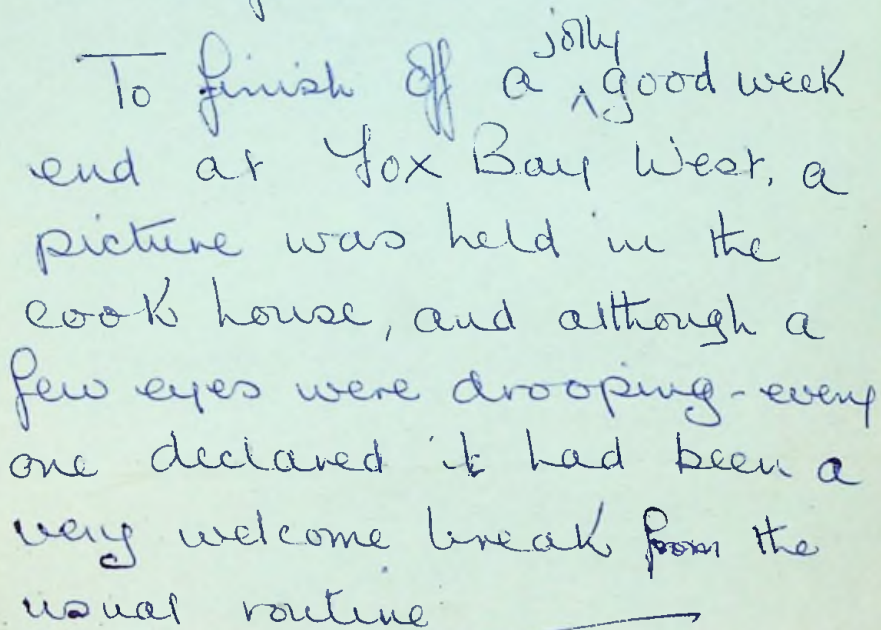 To finish off a jolly good week
end at Fox Bay West, a
picture was held in the
cook house, and although a
few eyes were drooping - every
one declared it had been a
very welcome break from the
usual routine